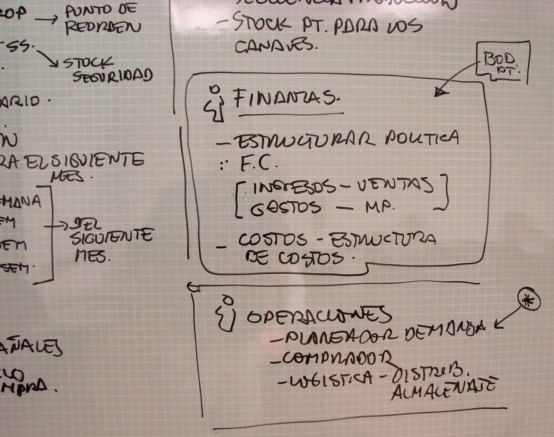 ROP → PUNTO DE
REORDEN
SS. → STOCK
SEGURIDAD
ARIO.
RA EL SIGUIENTE
MES.
MANA
EM
SEM
SEM.
DEL
SIGUIENTE
MES.
AÑALES
MPRA.
- STOCK PT. PARA LOS
CANALES.
BOD.
PT.
FINANZAS.
- ESTRUCTURAR POLITICA
: F.C.
[INGRESOS - VENTAS
GASTOS - MP.]
- COSTOS - ESTRUCTURA
DE COSTOS.
OPERACIONES
- PLANEADOR DEMANDA
*
- COMPRADOR
- LOGISTICA - DISTRIB.